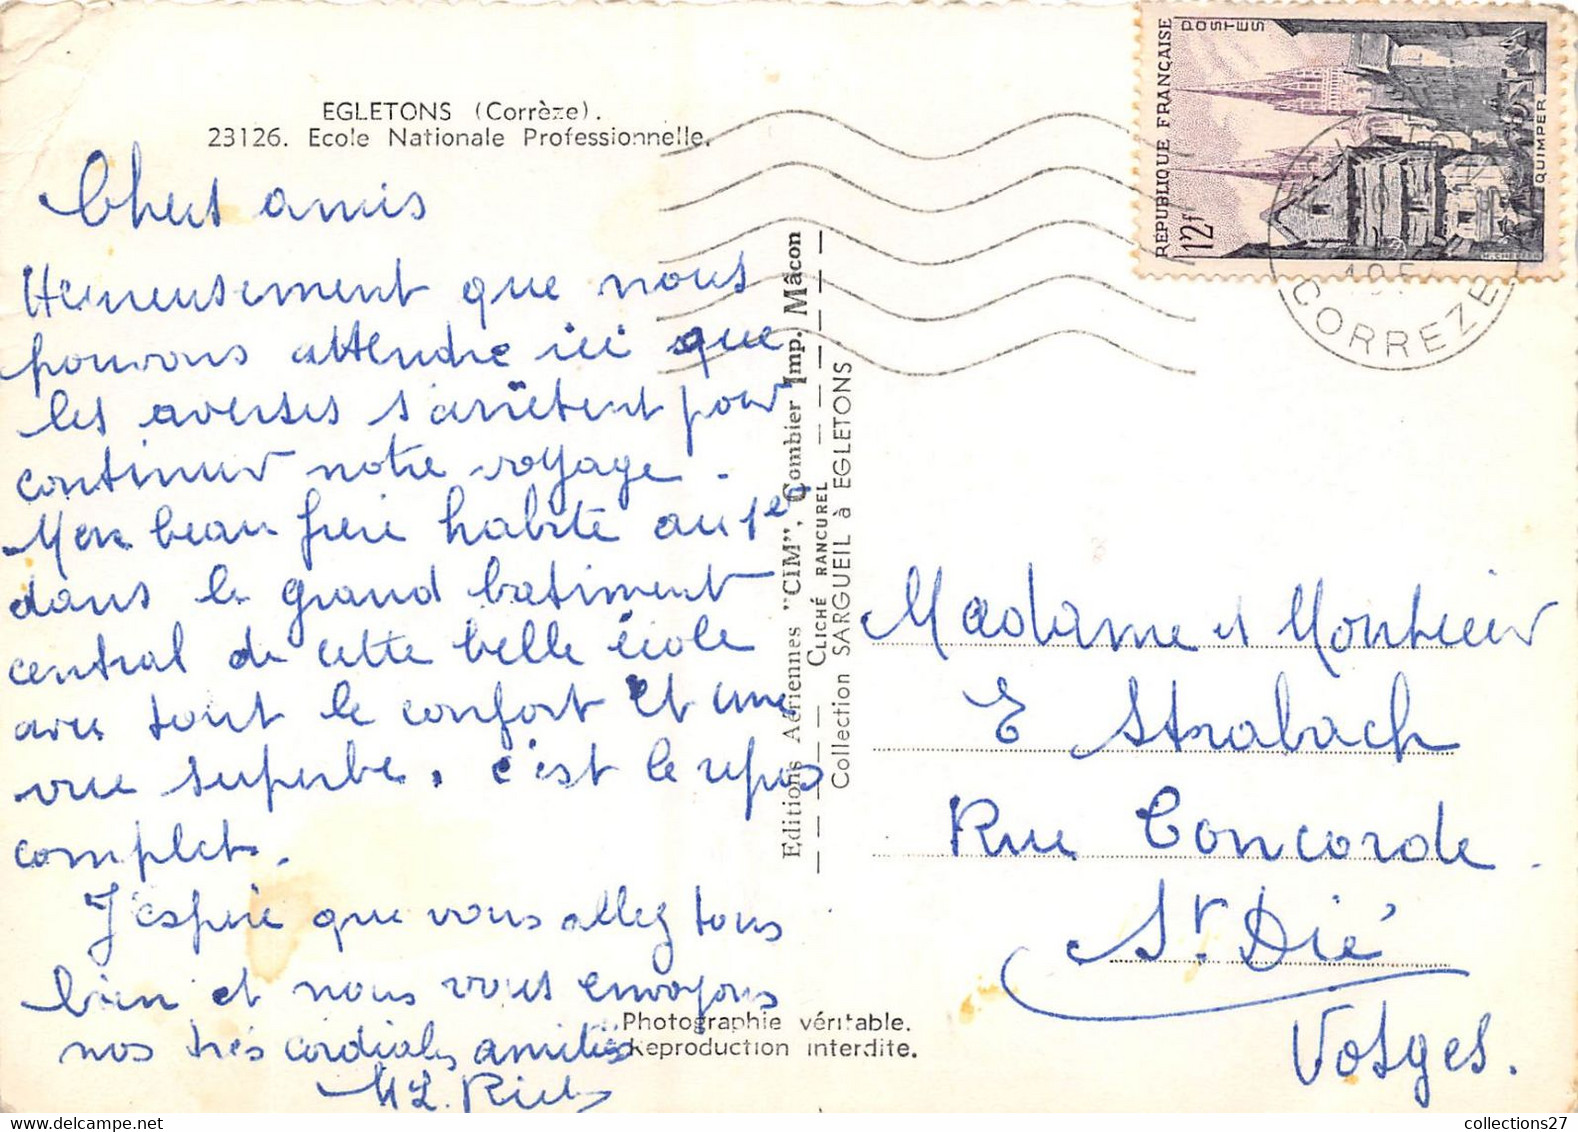 EGLETONS (Corrèze).
23126. Ecole Nationale Professionnelle.
Chers amis
Heureusement que nous
pouvons attendre ici que
les averses s'arrêtent pour
continuer notre voyage.
Mon beau frère habite au 1er
dans le grand batiment
central de cette belle école
avec tout le confort et une
vue superbe. c'est le repos
complet.
J'espère que vous allez tous
bien et nous vous envoyons
nos très cordiales amitiés
ML.
Photographie véritable.
Reproduction interdite.
Editions Aériennes "CIM", Combier Imp. Mâcon
CLICHÉ RANCUREL
Collection SARGUEIL à EGLETONS
RÉPUBLIQUE FRANÇAISE
POSTES
12f
QUIMPER
CORREZE
Madame et Monsieur
E Strabach
Rue Concorde
St Dié
Vosges.
collections27